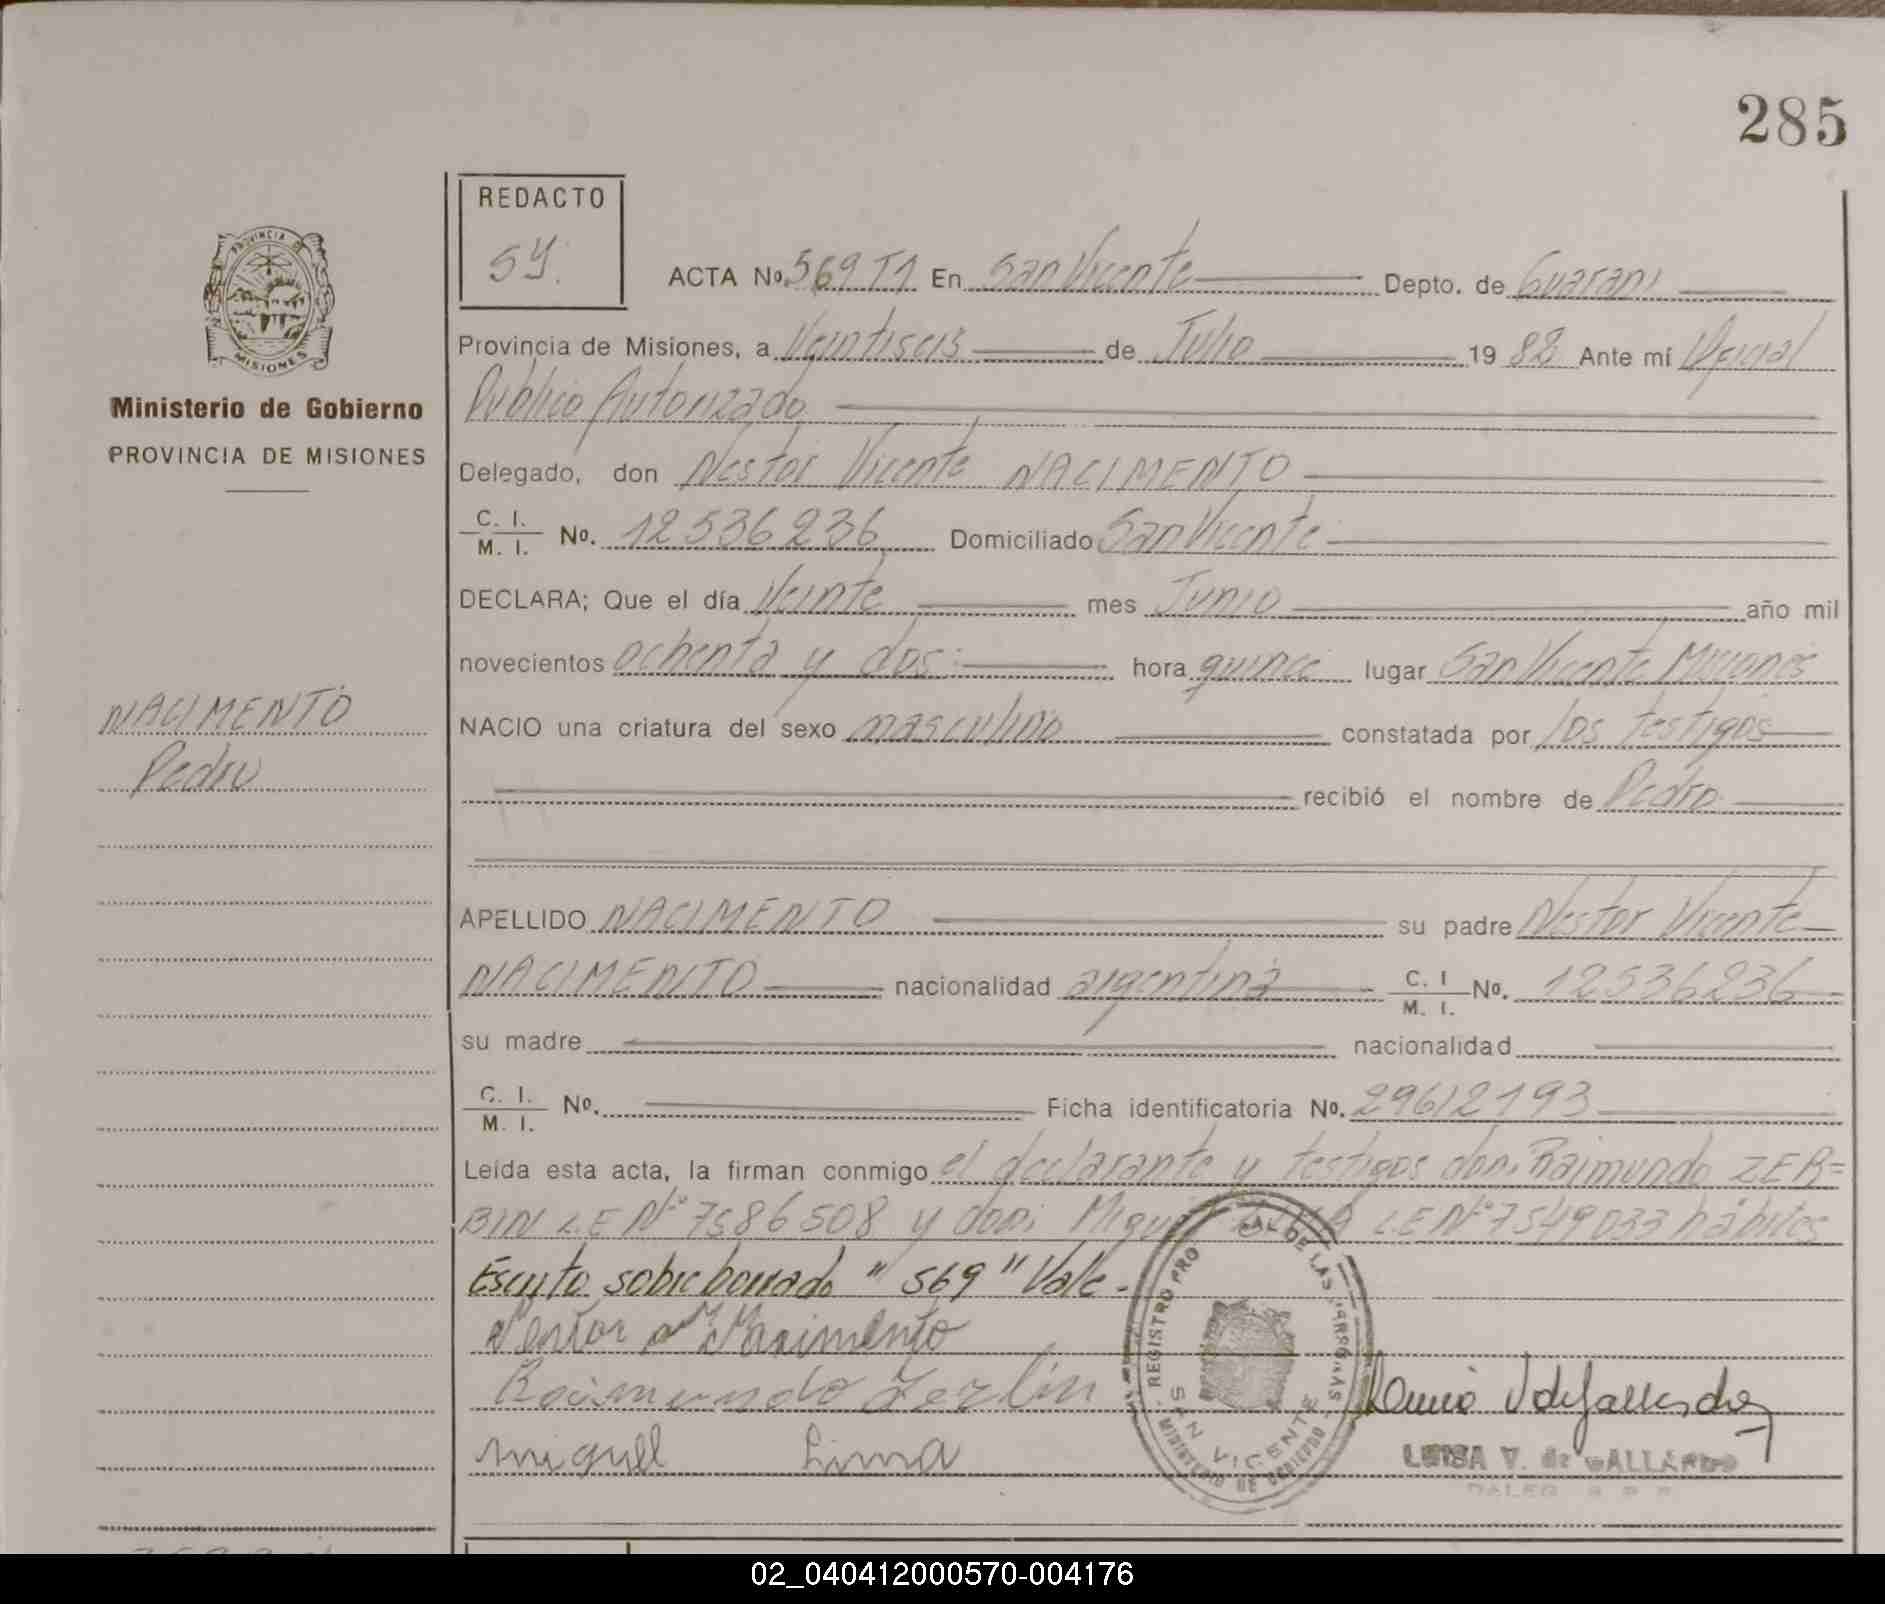 285
REDACTO
SY.
PROVINCIA DE
MISIONES
Ministerio de Gobierno
PROVINCIA DE MISIONES
ACTA No. 569 T1 En San Vicente Depto. de Guaraní
Provincia de Misiones, a Veintiseis de Julio 19 88 Ante mí Oficial
Público Autorizado
Delegado, don Nestor Vicente NACIMENTO
C. I. / M. I. No. 12536236 Domiciliado San Vicente
DECLARA; Que el día Veinte mes Junio año mil
novecientos ochenta y dos: hora quince lugar San Vicente Misiones
NACIMENTO
Pedro
NACIO una criatura del sexo masculino constatada por los testigos
recibió el nombre de Pedro
APELLIDO NACIMENTO su padre Nestor Vicente
NACIMENTO nacionalidad argentina C. I / M. I. No. 12536236
su madre nacionalidad
C. I. / M. I. No. Ficha identificatoria No. 29612193
Leída esta acta, la firman conmigo el declarante y testigos don: Raimundo ZER=
BIN LE Nº 7586508 y don: Miguel LE Nº 7549033 hábiles
Escrito sobre borrado " 569 " Vale -
Nestor Nacimento
Raimundo Zerbin
Miguel Lima
REGISTRO PRO AL DE LAS PERSONAS
SAN VICENTE
MINISTERIO DE GOBIERNO
LUISA V. de GALLARDO
02_040412000570-004176